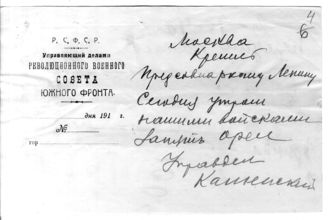 4
6
Р. С. Ф. С. Р.
Управляющий делами
РЕВОЛЮЦИОННОГО ВОЕННОГО
СОВЕТА
ЮЖНОГО ФРОНТА.
дня 191 г.
№
гор
Москва
Кремль
Предсовнаркому Ленину
Сегодня утром
нашими войсками
занять Орел
Управдел
Каменский